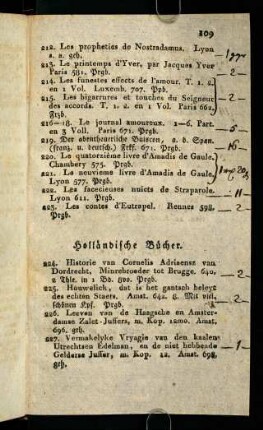 109
212. Les propheties de Nostradamus. Lyon
s. a. geh.
213. Le printemps d'Yver, par Jacques Yver
Paris 581. Prgb.
— 2 —
214. Les funestes effects de l'amour. T. 1. 2.
en 1 Vol. Luxemb. 707. Pgb.
215. Les bigarrures et touches du Seigneur
des accords. T. 1. 2. en 1 Vol. Paris 662.
Frzb.
— 2 —
216–18. Le journal amoureux. 1–6. Part.
en 3 Voll. Paris 671. Prgb.
219. Der abentheurliche Buscon, a. d. Span.
(franz. u. deutsch.) Frkf. 671. Prgb.
— 16
220. Le quatorzième livre d'Amadis de Gaule,
Chambery 575. Prgb.
221. Le neuvieme livre d'Amadis de Gaule,
Lyon 577. Prgb.
222. Les facecieuses nuicts de Straparole.
Lyon 611. Prgb.
223. Les contes d'Eutrapel. Rennes 598.
Prgb.
— 2
Holländische Bücher.
224. Historie van Cornelis Adriaensen van
Dordrecht, Minrebroeder tot Brugge. 640.
2 Thle. in 1 Bd. gws. Prgb.
225. Houwelick, dat is het gantsch beleyt
des echten Staets. Amst. 642. 8. Mit viel.
schönen Kpf. Prgb.
— 2 —
226. Leeven van de Haagsche en Amster-
damse Zalet-Juffers, m. Kop. 12mo. Amst.
696. geh.
227. Vermakelyke Vryagie van den kaalen
Utrechtsen Edelman, en de niet hebbende
Gelderse Juffer, m. Kop. 12. Amst. 698.
geh.
— 1